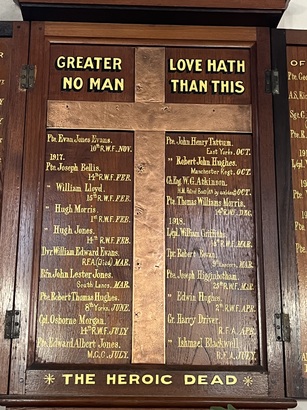 GREATER LOVE HATH
NO MAN THAN THIS
Pte. Evan Jones Evans.
10th R.W.F. NOV.
1917.
Pte. Joseph Bellis.
14th R.W.F. FEB.
" William Lloyd.
15th R.W.F. FEB.
" Hugh Morris
R.W.F. FEB.
" Hugh Jones.
14th R.W.F. FEB.
Dvr William Edward Evans.
R.E.A (Died) MAR.
Rfn. John Lester Jones.
South Lancs. MAR.
Pte. Robert Thomas Hughes.
8th York. JUNE
Cpl. Osborne Morgan.
14th R.W.F. JULY
Pte. Edward Albert Jones.
M.G.C. JULY.
Pte. John Henry Tattum.
East Yorks. OCT.
" Robert John Hughes.
Manchester Regt. OCT.
Ch. Eng. W.G. Atkinson.
OCT.
Pte. Thomas Williams Morris.
R.W.F. DEC.
1918.
L/cpl. William Griffiths.
R.W.F. MAR.
Tpr. Robert Bevan.
MAR.
Pte. Joseph Higginbotham.
MAR.
" Edwin Hughes.
R.W.F. APR.
Gr. Harry Driver.
R.F.A. APR.
" Ishmael Blackwell.
R.F.A. JULY.
THE HEROIC DEAD